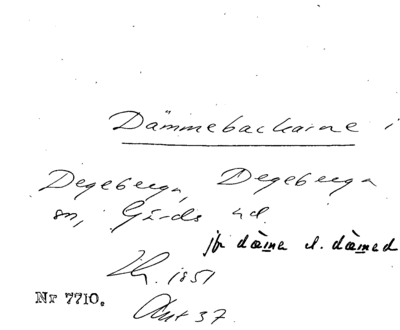 Dämmebackarne i
Degeberga, Degeberga
sn, Gärds hd.
jfr däme el. dämed
1851
Nr 7710.
Akt 37.